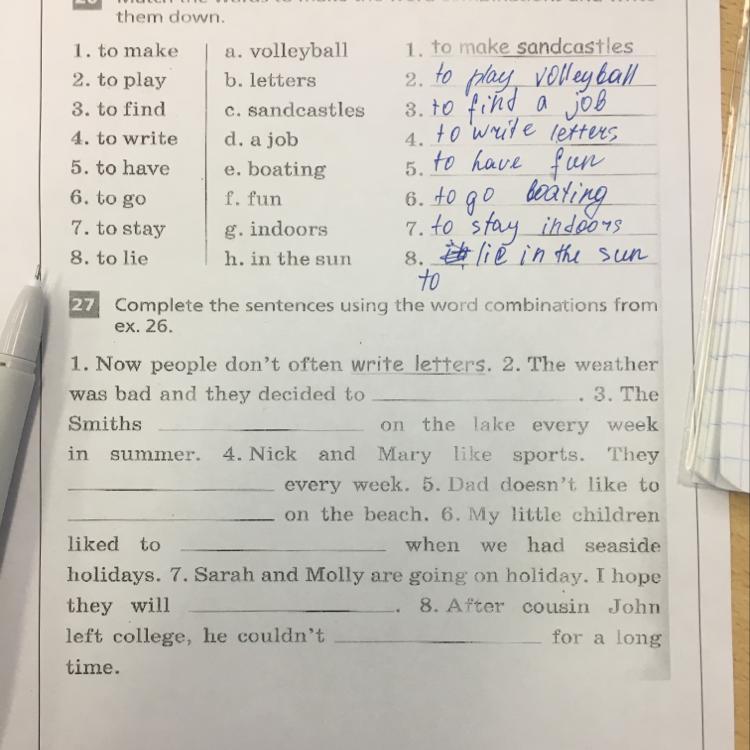 them down.
1. to make a. volleyball 1. to make sandcastles
2. to play b. letters 2. to play volleyball
3. to find c. sandcastles 3. to find a job
4. to write d. a job 4. to write letters
5. to have e. boating 5. to have fun
6. to go f. fun 6. to go boating
7. to stay g. indoors 7. to stay indoors
8. to lie h. in the sun 8. lie in the sun
to
27 Complete the sentences using the word combinations from
ex. 26.
1. Now people don't often write letters. 2. The weather
was bad and they decided to ____________. 3. The
Smiths ____________ on the lake every week
in summer. 4. Nick and Mary like sports. They
____________ every week. 5. Dad doesn't like to
____________ on the beach. 6. My little children
liked to ____________ when we had seaside
holidays. 7. Sarah and Molly are going on holiday. I hope
they will ____________. 8. After cousin John
left college, he couldn't ____________ for a long
time.